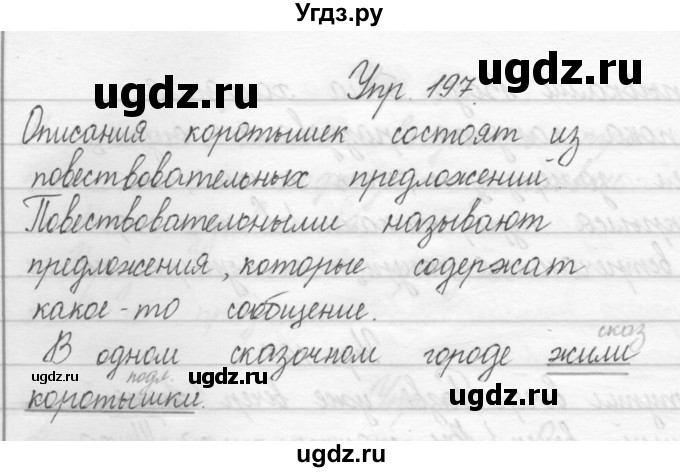 Угдз.ру
Упр. 197.
Описания коротышек состоят из
повествовательных предложений
Повествовательными называют
предложения, которые содержат
какое-то сообщение.
сказ
В одном сказочном городе жили
подл.
коротышки.
ugdz.ru ugdz.ru
ugdz.ru ugdz.ru
ugdz.ru ugdz.ru
ugdz.ru ugdz.ru ugdz.ru